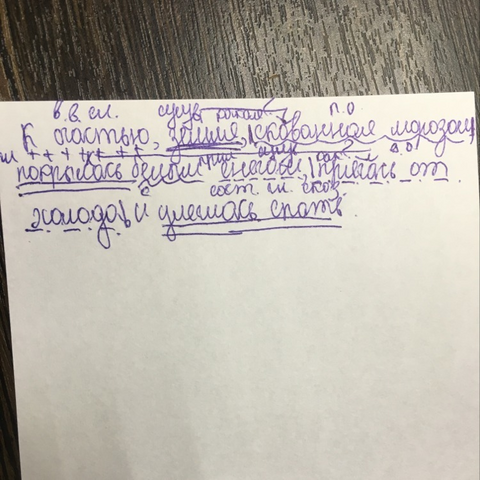 в.в.сл. сущ. какая? п.о.
К счастью, земля, скованная морозом,
покрылась белым снегом, прячась от
сост. гл. сказ.
холода, и улеглась спать.